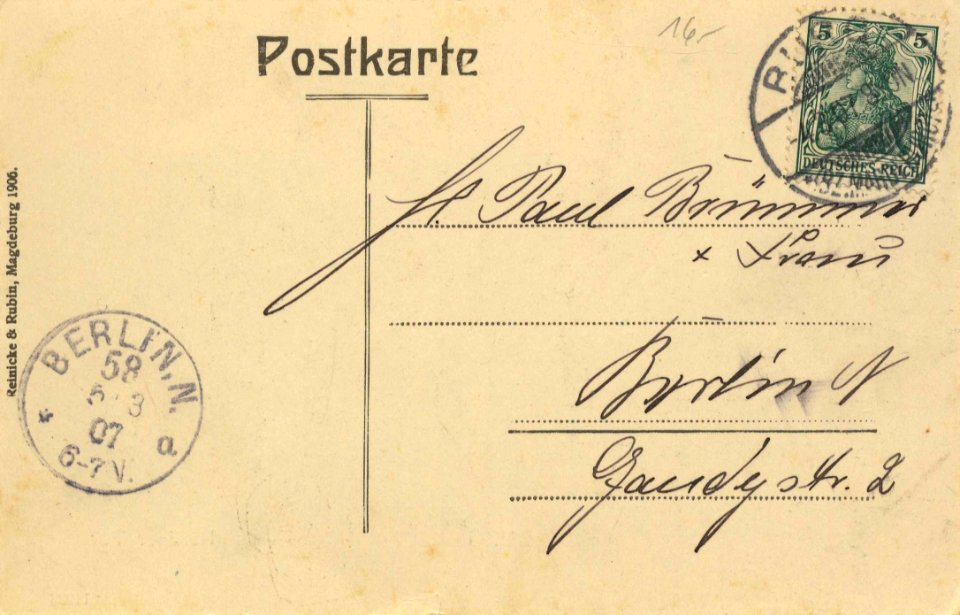 Postkarte
16.-
5 5
DEUTSCHES REICH
Paul Brümmer
+ Frau
Berlin N
Gaudystr. 2
Reinicke & Rubin, Magdeburg 1906.
BERLIN, N.
58
5 3
07
6-7 V.
* a